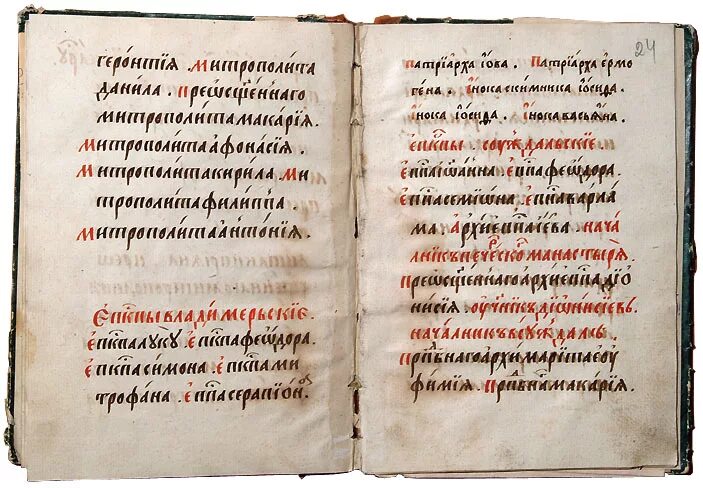 геронтїѧ митрополита
данила . преѡсщ҃еннаго
митрополита макарїѧ .
митрополита афонасїѧ .
митрополита кирила ми
трополита филиппа .
митрополита антонїѧ .
Еп҃кпы владимерьскїе .
еп҃кпа луку . еп҃кпа феѡдора .
еп҃кпа симона . еп҃кпа ми
трофана . еп҃кпа серапїѡна
24
патрїарха їѡва . патрїарха ермо
гена . їнока скимника їѡсифа .
їнока їѡсифа . їнока васьѧна .
еп҃кпы соуждальскїе .
еп҃кпа їѡанна еп҃кпа феѡдора .
еп҃кпа семїѡна . еп҃кпа варла
ма архїеп҃кпа їева нача
лникъ печерском манастырѧ
преѡсщ҃еннаго архїеп҃кпа дїѡ
нисїѧ . оученикъ дїѡнисїевъ
началникъ в суждалѣ .
прп҃бнаго архимарита еоу
фимїѧ . прп҃бна макарїѧ .